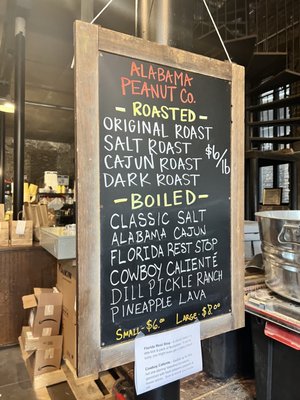 ALABAMA
PEANUT CO.
- ROASTED -
ORIGINAL ROAST
SALT ROAST
CAJUN ROAST
DARK ROAST
$6/lb
- BOILED -
CLASSIC SALT
ALABAMA CAJUN
FLORIDA REST STOP
COWBOY CALIENTÉ
DILL PICKLE RANCH
PINEAPPLE LAVA
SMALL-$6.00 LARGE-$8.00
Florida Rest Stop